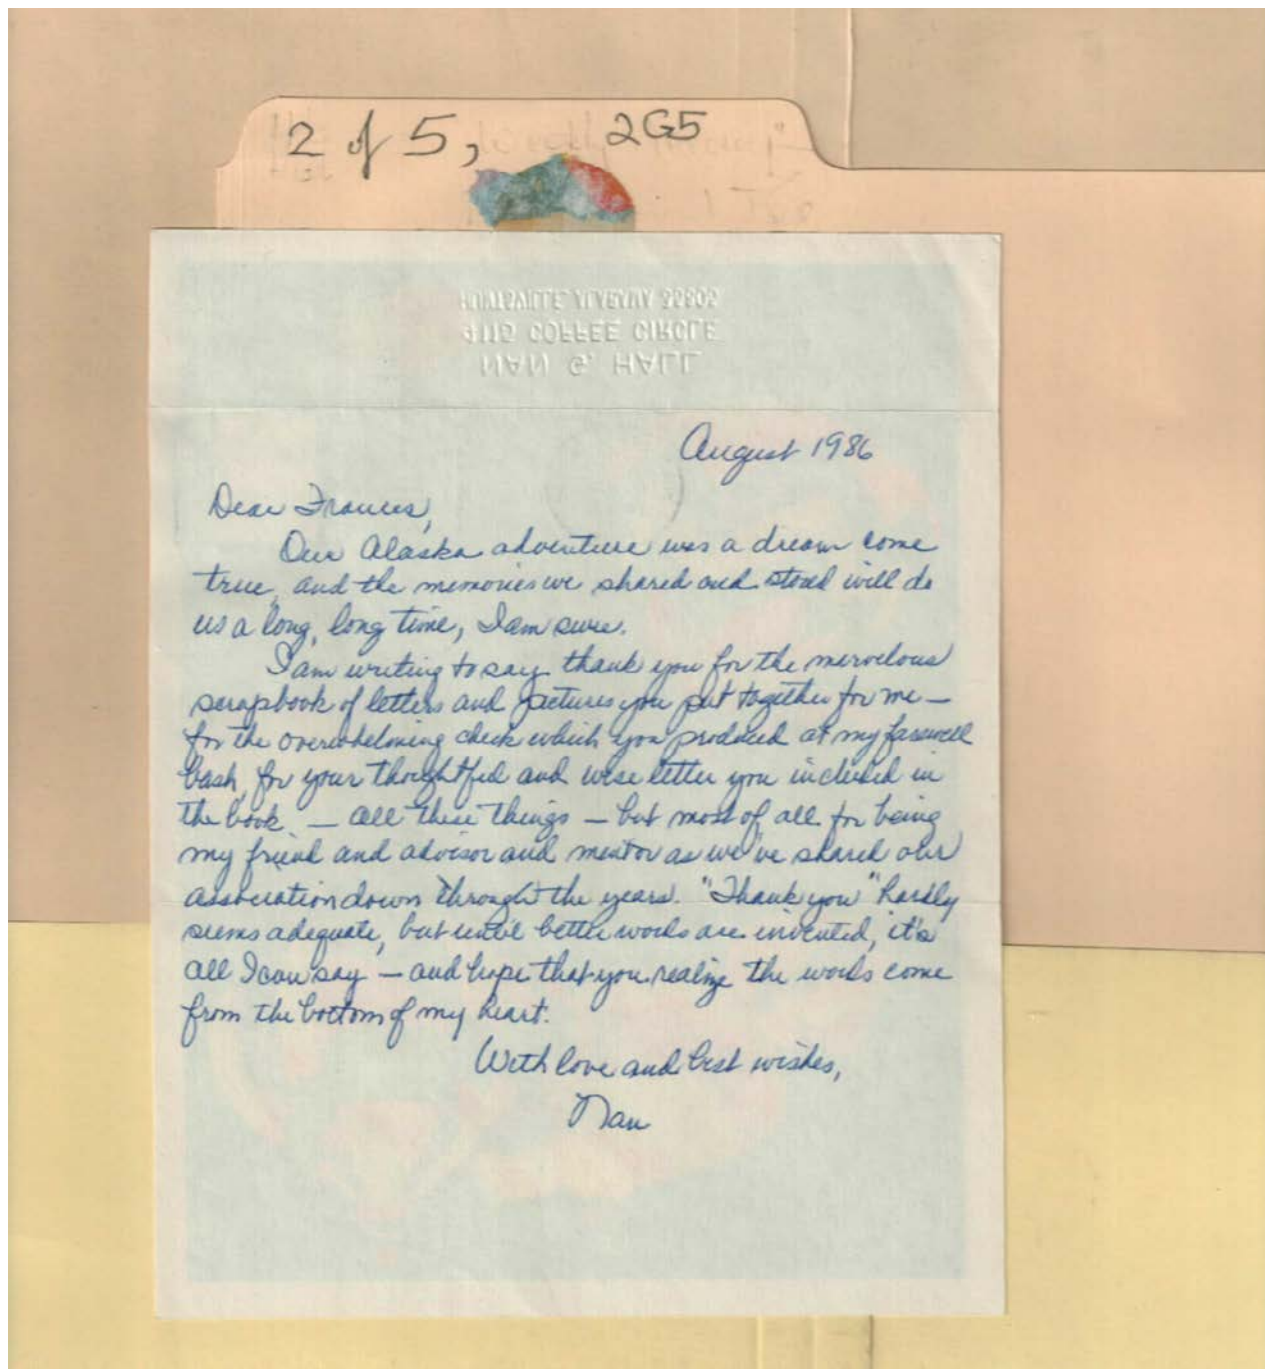 2 of 5, 2G5
NAN G. HALL
4115 COFFEE CIRCLE
HUNTSVILLE ALABAMA 35802
August 1986
Dear Frances,
Our Alaska adventure was a dream come
true, and the memories we shared and stored will do
us a long, long time, I am sure.
I am writing to say thank you for the marvelous
scrapbook of letters and pictures you put together for me —
for the overwhelming check which you produced at my farewell
bash, for your thoughtful and wise letter you included in
the book — all these things — but most of all for being
my friend and advisor and mentor as we've shared our
association down through the years. "Thank you" hardly
seems adequate, but until better words are invented, it's
all I can say — and hope that you realize the words come
from the bottom of my heart.
With love and best wishes,
Nan